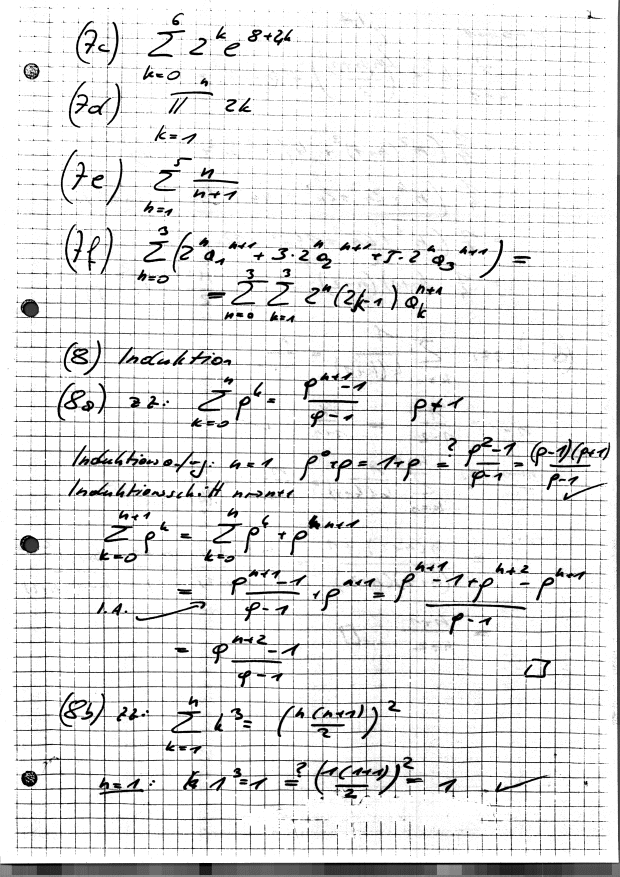 (7c) ∑_{k=0}^{6} 2^k e^{8+2k}
(7d) ∏_{k=1}^{n} 2k
(7e) ∑_{n=1}^{5} n/(n+1)
(7f) ∑_{n=0}^{3} (2^n a_1^{n+1} + 3·2^n a_2^{n+1} + 5·2^n a_3^{n+1}) =
= ∑_{n=0}^{3} ∑_{k=1}^{3} 2^n (2k-1) a_k^{n+1}
(8) Induktion
(8a) zz: ∑_{k=0}^{n} ρ^k = (ρ^{n+1}-1)/(ρ-1) ρ≠1
Induktionsanfang: n=1 ρ^0+ρ = 1+ρ =? (ρ^2-1)/(ρ-1) = (ρ-1)(ρ+1)/(ρ-1) ✓
Induktionsschritt n→n+1
∑_{k=0}^{n+1} ρ^k = ∑_{k=0}^{n} ρ^k + ρ^{n+1}
I.A. = (ρ^{n+1}-1)/(ρ-1) + ρ^{n+1} = (ρ^{n+1}-1+ρ^{n+2}-ρ^{n+1})/(ρ-1)
= (ρ^{n+2}-1)/(ρ-1) □
(8b) zz: ∑_{k=1}^{n} k^3 = (n(n+1)/2)^2
n=1: 1^3=1 =? (1(1+1)/2)^2 = 1 ✓